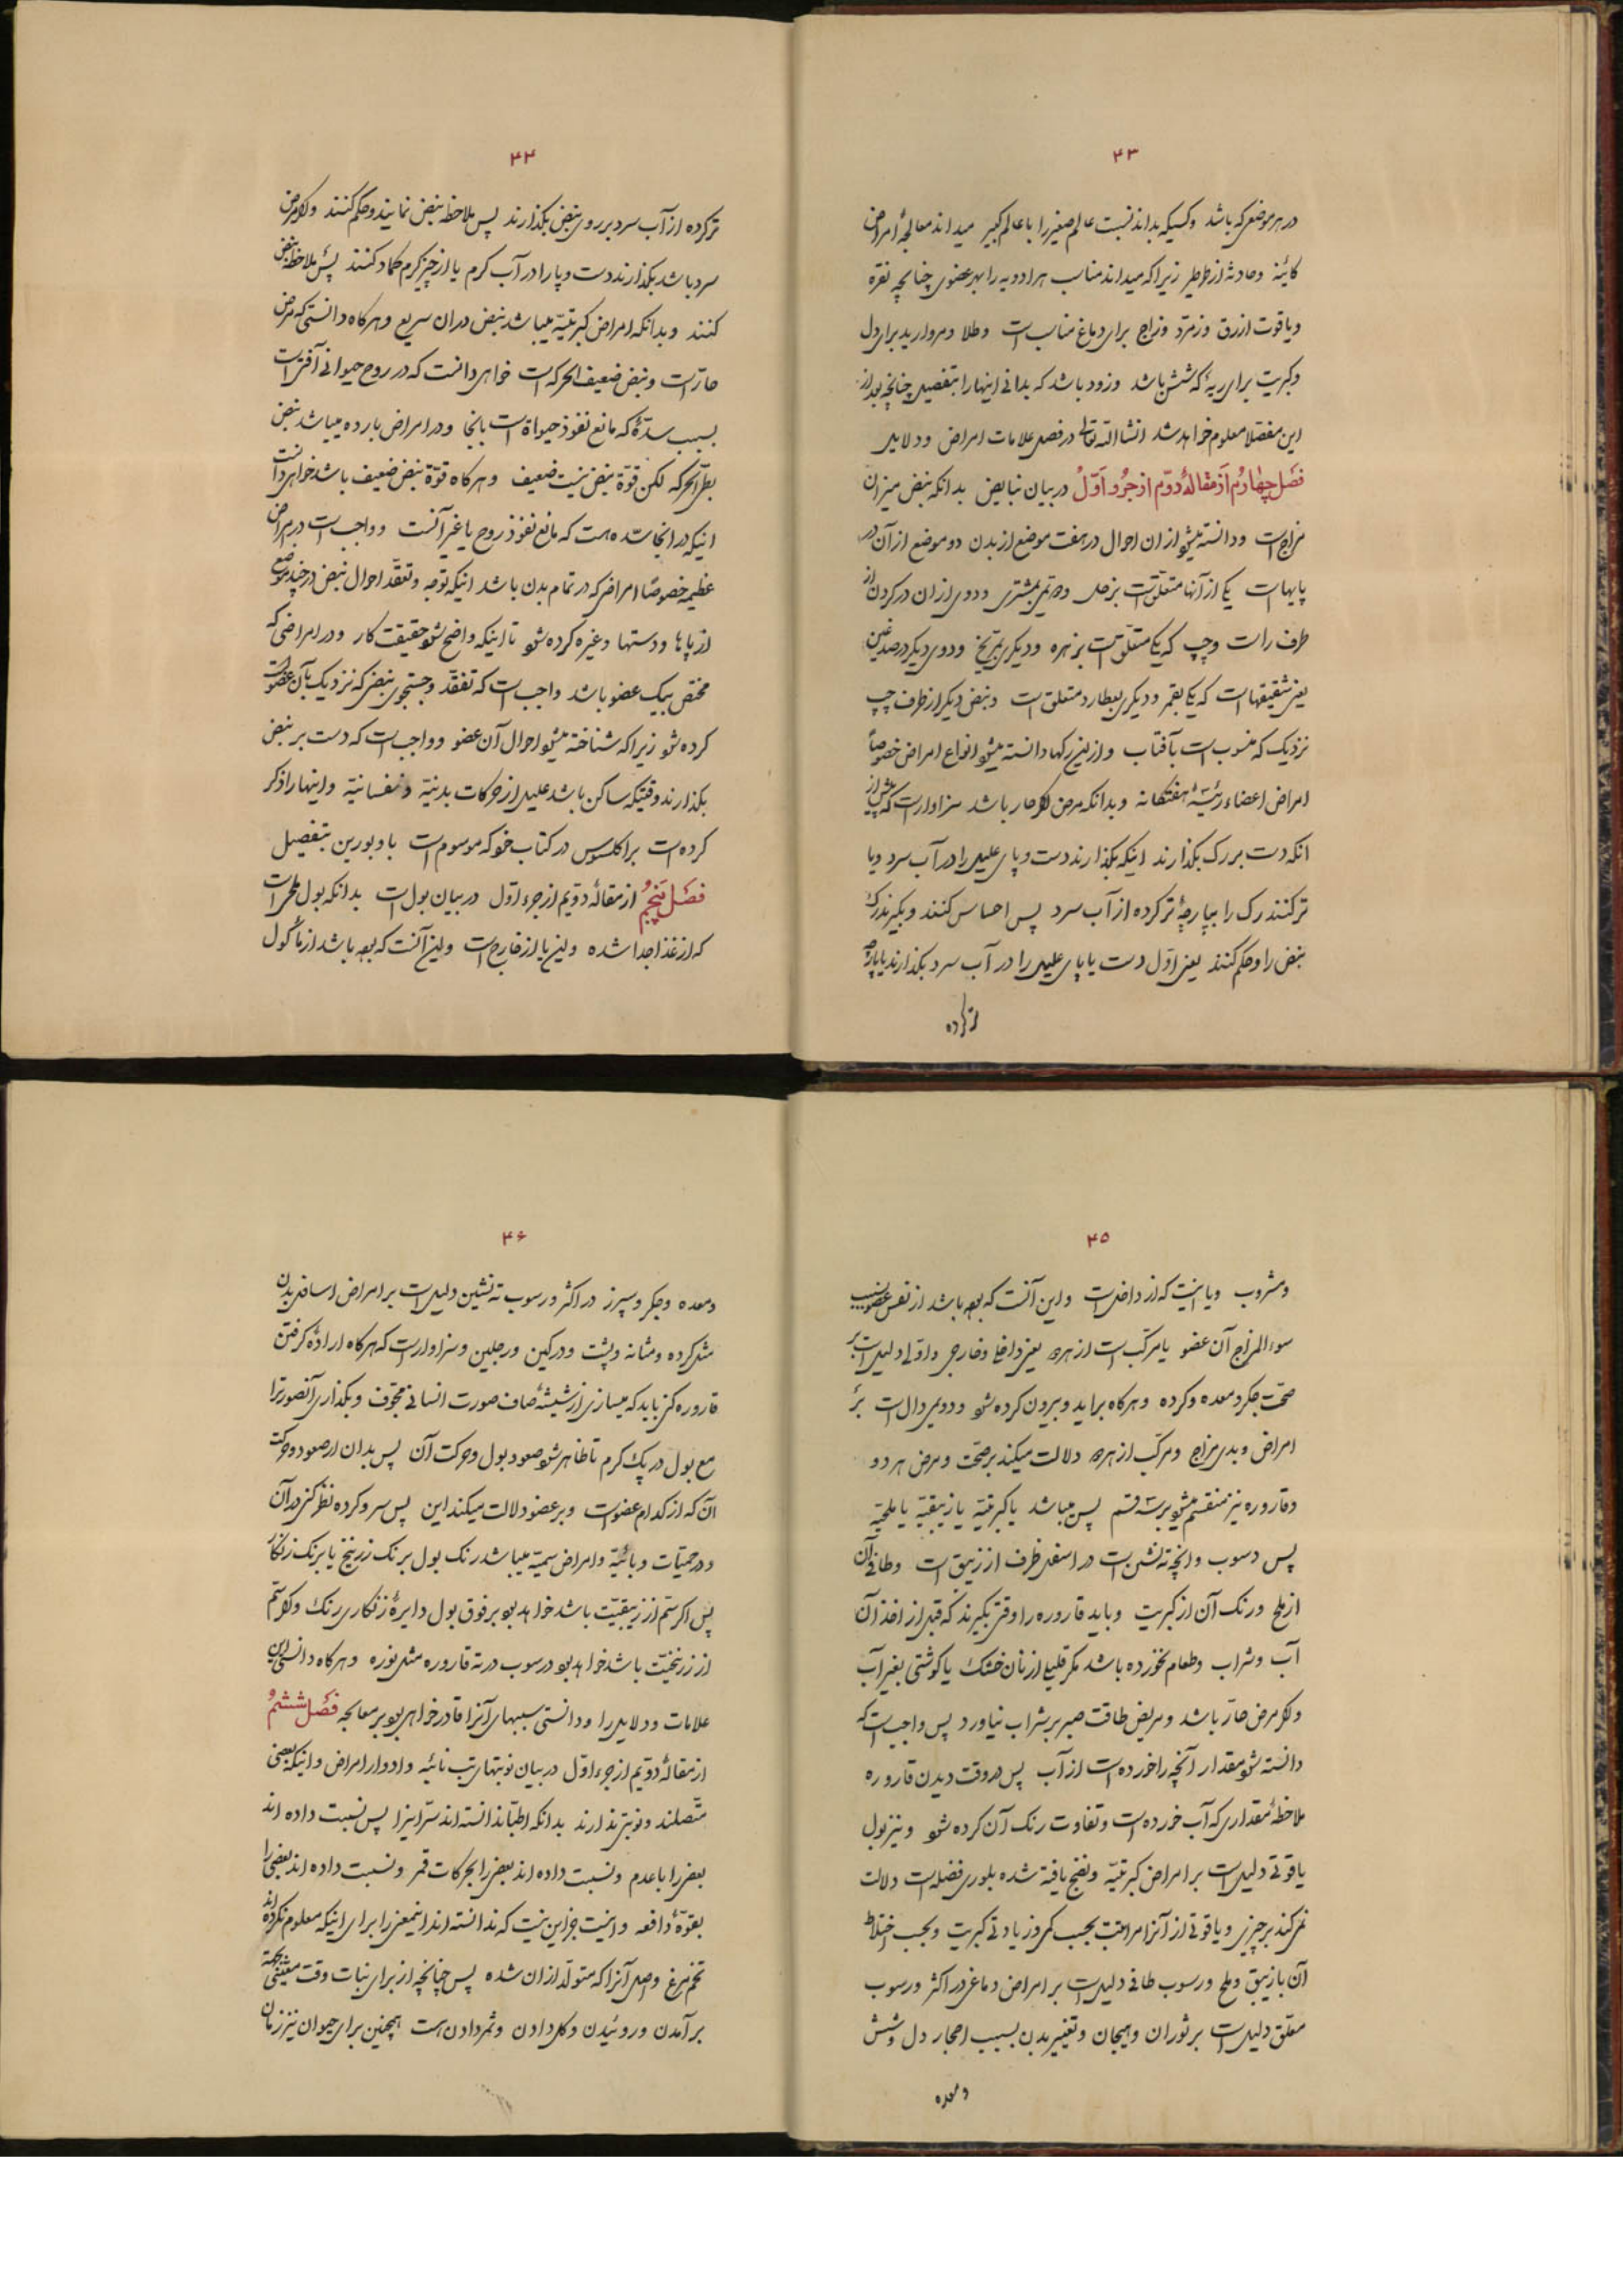 ۴۳
در هر موضعی که باشد و کسیکه بداند نسبت عالم صغیر را با عالم کبیر میداند معالجهٔ امراض
کائنه و حادثه از طرطیر زیرا که میداند مناسب هر ادویه را بهر عضوی چنانچه نقره
و یاقوت ازرق و زمرد و زاج برای دماغ مناسب است و طلا و مروارید برای دل
و کبریت برای ریه که شش باشد و زود باشد که بدانی اینها را بتفصیل چنانچه بعد از
این مفصلا معلوم خواهد شد انشا الله تعالی در فصل علامات امراض و دلایل
فصل چهارم از مقالهٔ دوم از جزو اول در بیان نبایض بدانکه نبض میزان
مزاج است و دانسته میشود از ان احوال در هفت موضع از بدن دو موضع از آن در
پایهاست یکی از آنها متعلق است بزحل و دویمی بمشتری و دوی از ان در کردن از
طرف راست و چپ که یکی متعلق است بزهره و دیکری بمریخ و دوی دیکر در صدغین
یعنی شقیقهاست که یکی بقمر و دیکری بعطارد متعلق است و نبض دیکر از طرف چپ
نزدیک که منسوب است بآفتاب و از این رکها دانسته میشود انواع امراض خصوصاً
امراض اعضاء رئیسهٔ هفتکانه و بدانکه مرض اکر حار باشد سزاوار است که پیش از
انکه دست بر رک بکذارند اینکه بکذارند دست و پای علیل را در آب سرد و یا
تر کنند رک را بپارچهٔ تر کرده از آب سرد پس احساس کنند و بکیرند رک
نبض را و حکم کنند یعنی اول دست یا پای علیل را در آب سرد بکذارند یا پارچه
تر کرده
۴۴
تر کرده از آب سرد بر روی نبض بکذارند پس ملاحظه نبض نمایند و حکم کنند و اکر مرض
سرد باشد بکذارند دست و پا را در آب کرم یا از چیز کرم کماد کنند پس ملاحظه نبض
کنند و بدانکه امراض کبریتیه میباشد نبض در ان سریع و هر کاه دانستی که مرض
حار است و نبض ضعیف الحرکه است خواهی دانست که در روح حیوانی آفتی است
بسبب سدهٔ که مانع نفوذ حیواة است بانجا و در امراض بارده میباشد نبض
بطئ الحرکه لکن قوة نبض نیست ضعیف و هر کاه قوة نبض ضعیف باشد خواهی دانست
اینکه در انجا سده هست که مانع نفوذ روح یا غیر آنست و واجب است در امراض
عظیمه خصوصًا امراضی که در تمام بدن باشد اینکه توجه و تفقد احوال نبض در چند موضع
از پاها و دستها و غیره کرده شود تا اینکه واضح شود حقیقت کار و در امراضی که
مختص بیک عضو باشد واجب است که تفقد و جستجوی نبضی که نزدیک بآن عضو است
کرده شود زیرا که شناخته میشود احوال آن عضو و واجب است که دست بر نبض
بکذارند وقتیکه ساکن باشد علیل از حرکات بدنیه و نفسانیه و اینها را ذکر
کرده است براکلسوس در کتاب خود که موسوم است باوبورین بتفصیل
فصل پنجم از مقالهٔ دویم از جزء اول در بیان بول است بدانکه بول ملحی است
که از غذا جدا شده و این یا از خارج است و این آنست که بوده باشد از مأکول
۴۵
و مشروب و یا اینست که از داخل است و این آنست که بوده باشد از نفس عضو بسبب
سوء المزاج آن عضو یا مرکب است از هر دو یعنی داخلی و خارجی و اولی دلیل است بر
صحت جکر و معده و کرده و هر کاه براید و بیرون کرده شود و دویمی دال است بر
امراض و بدی مزاج و مرکب از هر دو دلالت میکند بر صحت و مرض هر دو
و قاروره نیز منقسم میشود بر سه قسم پس میباشد یا کبریتیه یا زیبقیه یا ملحیه
پس رسوب و انچه ته نشین است در اسفل ظرف از زیبق است و طافی آن
از ملح و رنک آن از کبریت و باید قاروره را وقتی بکیرند که قبل از اخذ آن
آب و شراب و طعام نخورده باشد مکر قلیلی از نان خشک یا کوشتی بغیر آب
و اکر مرض حار باشد و مریض طاقت صبر بر شراب نیاورد پس واجب است که
دانسته شود مقدار آنچه را خورده است از آب پس در وقت دیدن قاروره
ملاحظهٔ مقداری که آب خورده است و تفاوت رنک آن کرده شود و نیز بول
یاقوتی دلیل است بر امراض کبریتیه و نضج یافته شده بلوری فضله است دلالت
نمی کند بر چیزی و یاقوتی از آنرا مراتب است بحسب کمی و زیادتی کبریت و بحسب اختلاط
آن با زیبق و ملح و رسوب طافی دلیل است بر امراض دماغی در اکثر و رسوب
معلق دلیل است بر ثوران و هیجان و تغییر بدن بسبب احجار دل و شش
و معده
۴۶
و معده و جکر و سپرز در اکثر و رسوب ته نشین دلیل است بر امراض اسافل بدن
مثل کرده و مثانه و پشت و ورکین و رجلین و سزاوار است که هر کاه ارادهٔ کرفتن
قاروره کنی باید که میسازی از شیشهٔ صاف صورت انسانی مجوف و بکذاری آنصورترا
مع بول در دیک کرم تا ظاهر شود صعود بول و حرکت آن پس بدان از صعود و حرکت
آن که از کدام عضو است و بر عضو دلالت میکند این پس سرد کرده نظر کن در آن
و در حمیات وبائیه و امراض سمیه میباشد رنک بول برنک زرنیخ یا برنک زنکار
پس اکر سم از زیبقیت باشد خواهد بود بر فوق بول دایرهٔ زنکاری رنک و اکر سم
از زرنیخیت باشد خواهد بود رسوب در ته قاروره مثل نوره و هر کاه دانستی این
علامات و دلایل را و دانستی سببهای آنرا قادر خواهی بود بر معالجه فصل ششم
از مقالهٔ دویم از جزء اول در بیان نوبتهای تب نائبه و ادوار امراض و اینکه بعضی
متصلند و نوبتی ندارند بدانکه اطبا ندانسته اند سر اینرا پس نسبت داده اند
بعضی را باعدم و نسبت داده اند بعضی را بحرکات قمر و نسبت داده اند بعضی را
بقوهٔ دافعه و اینست جز این نیست که ندانسته اند اینمعنی را برای اینکه معلوم نکرده اند
تخم مرغ و اصل آنرا که متولد از ان شده پس چنانچه از برای نبات وقت معینی بجهة
برآمدن و روئیدن و کل دادن و ثمر دادن هست همچنین برای حیوان نیز زمان